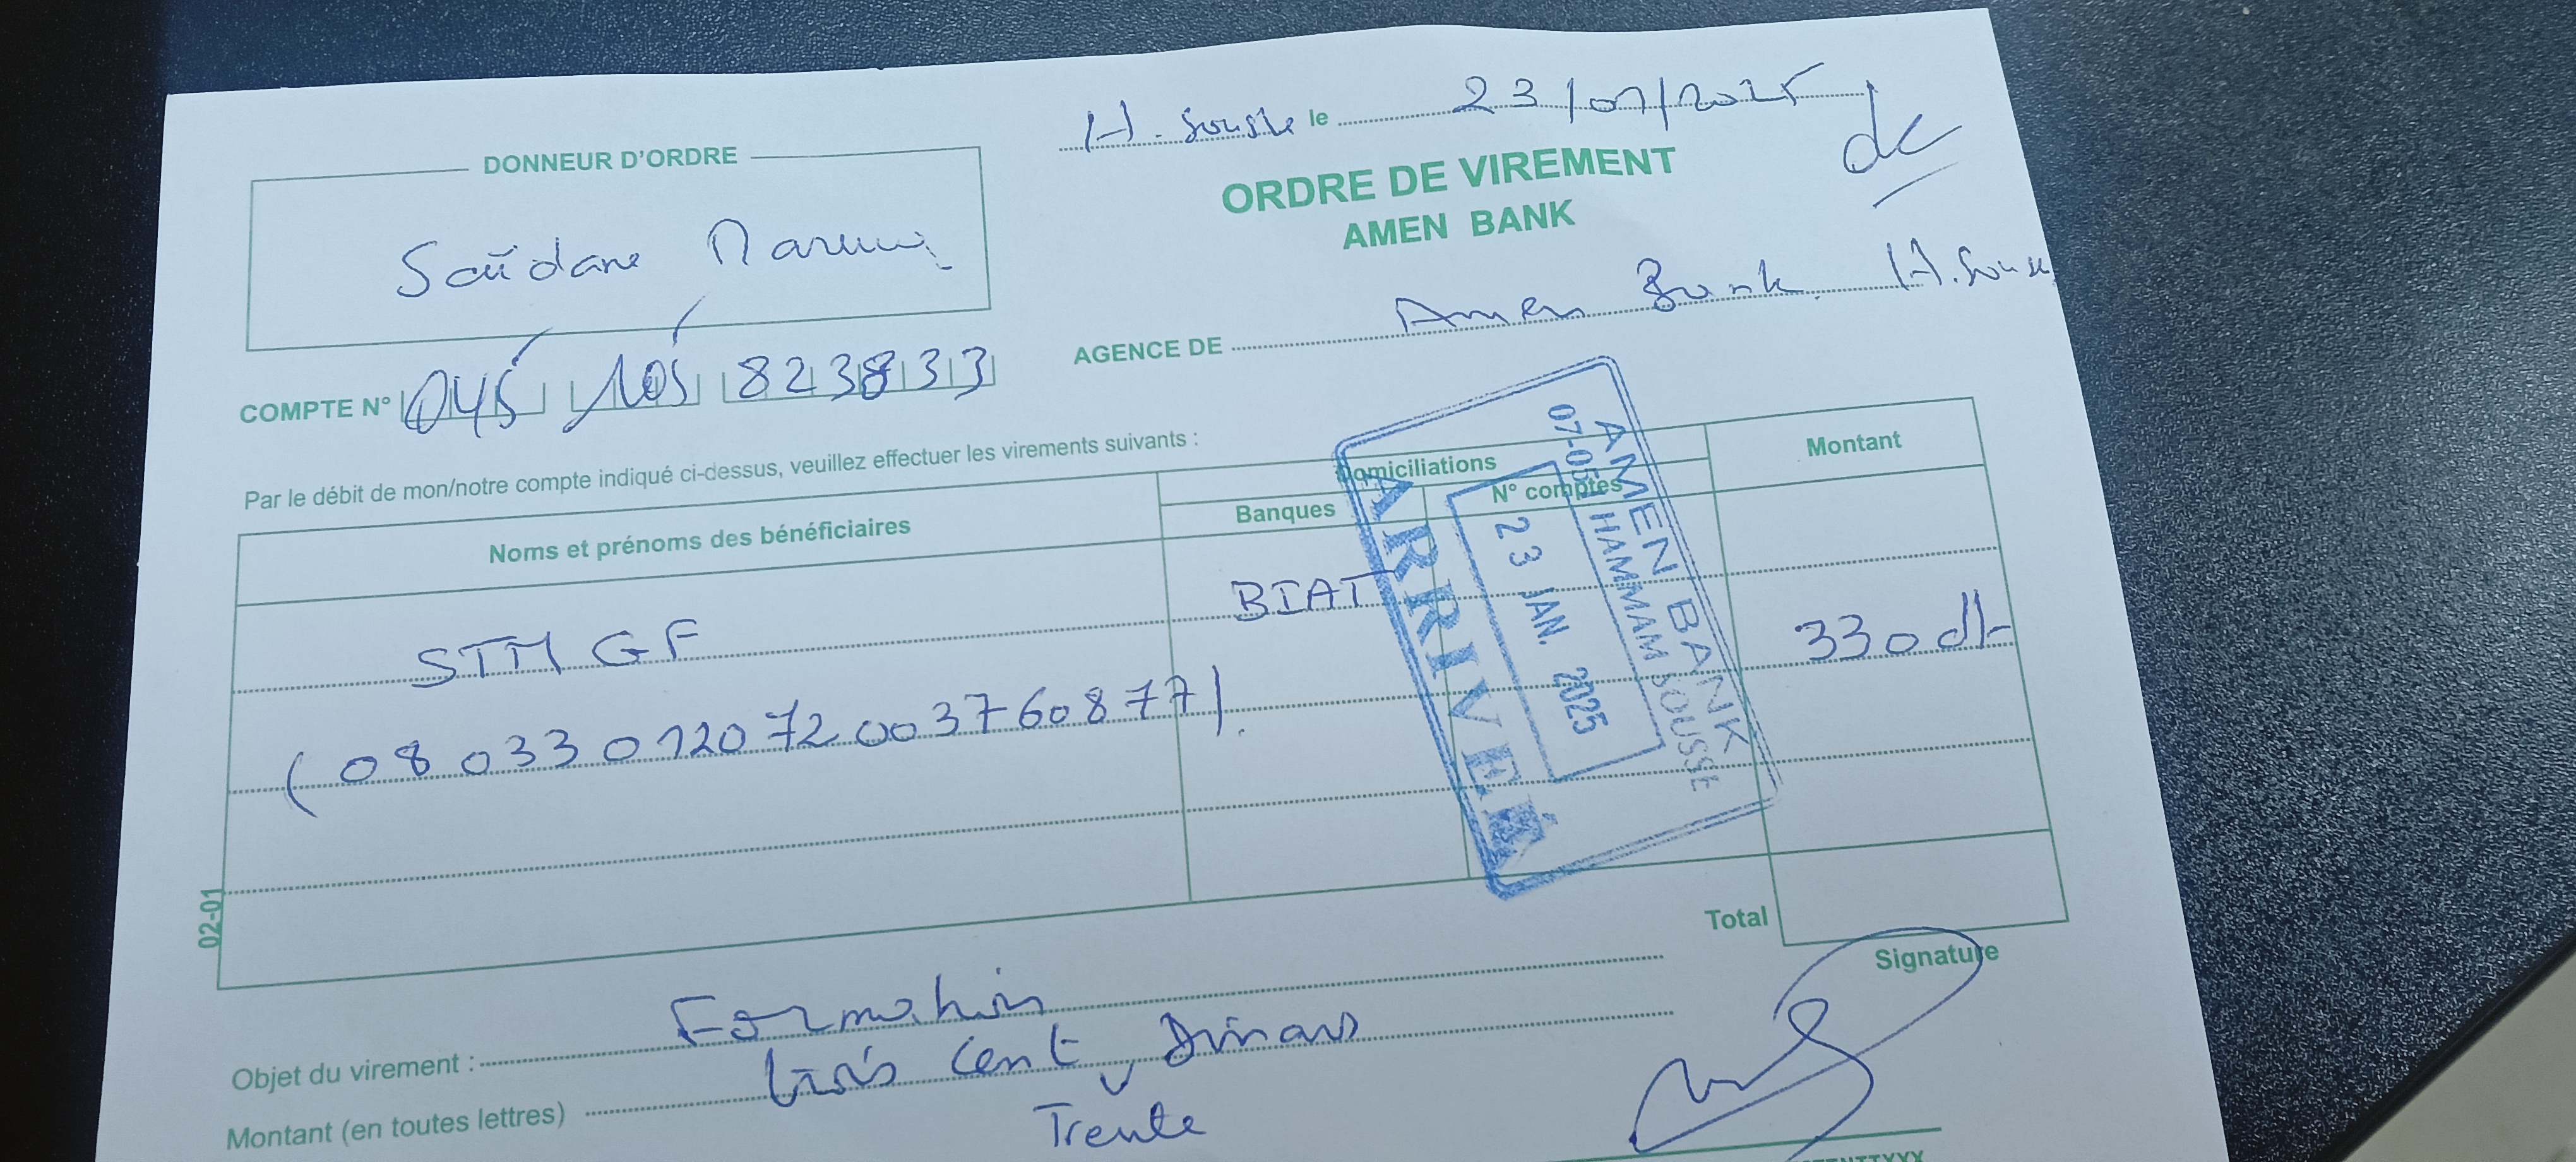 H. Sousse le 23/01/2025
dc
DONNEUR D'ORDRE
ORDRE DE VIREMENT
AMEN BANK
Saïdane
AGENCE DE Amen Bank H. Sousse
COMPTE N° 045 105 823833
Par le débit de mon/notre compte indiqué ci-dessus, veuillez effectuer les virements suivants :
Noms et prénoms des bénéficiaires
Domiciliations
Banques
N° comptes
Montant
STM GF
BIAT
330 dt
(08 033 0120 72 00 3760877).
AMEN BANK
07-05 HAMMAM SOUSSE
23 JAN. 2025
ARRIVÉE
Total
Signature
02-01
Objet du virement : Formation
Montant (en toutes lettres) trois cent Dinars
Trente